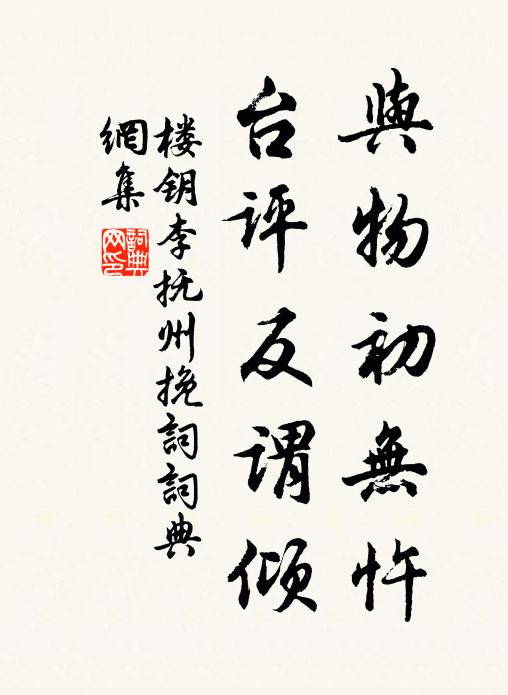 與物初無忤
台評反謂傾
楼钥李抚州挽詞詞典
網集
詞典网印